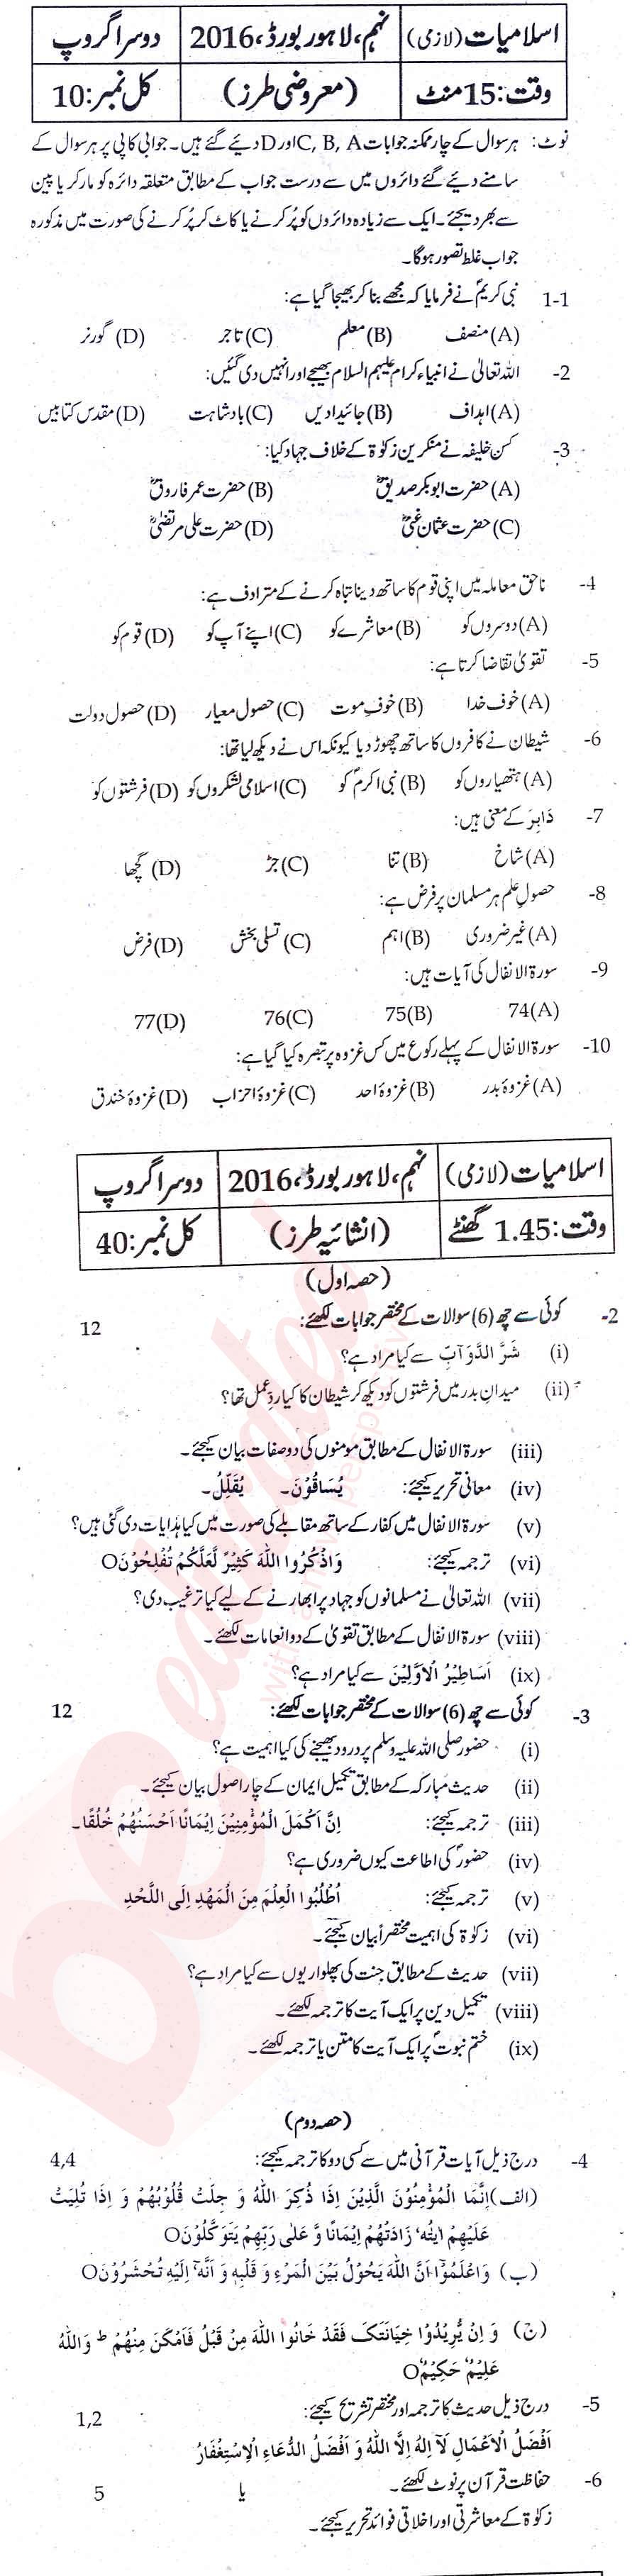 اسلامیات (لازمی) نہم، لاہور بورڈ، 2016 دوسرا گروپ
وقت: 15 منٹ (معروضی طرز) کل نمبر: 10
نوٹ: ہر سوال کے چار ممکنہ جوابات C, B, A اور D دیئے گئے ہیں۔ جوابی کاپی پر ہر سوال کے
سامنے دیئے گئے دائروں میں سے درست جواب کے مطابق متعلقہ دائرہ کو مارکر یا پین
سے بھر دیجئے۔ ایک سے زیادہ دائروں کو پُر کرنے یا کاٹ کر پُر کرنے کی صورت میں مذکورہ
جواب غلط تصور ہوگا۔
1-1 نبی کریمؐ نے فرمایا کہ مجھے بنا کر بھیجا گیا ہے:
(A) منصف (B) معلم (C) تاجر (D) گورنر
2- اللہ تعالیٰ نے انبیاء کرام علیہم السلام بھیجے اور انہیں دی گئیں:
(A) اہداف (B) جائیدادیں (C) بادشاہت (D) مقدس کتابیں
3- کس خلیفہ نے منکرین زکوٰۃ کے خلاف جہاد کیا:
(A) حضرت ابوبکر صدیقؓ (B) حضرت عمر فاروقؓ
(C) حضرت عثمان غنیؓ (D) حضرت علی مرتضیٰؓ
4- ناحق معاملہ میں اپنی قوم کا ساتھ دینا تباہ کرنے کے مترادف ہے:
(A) دوسروں کو (B) معاشرے کو (C) اپنے آپ کو (D) قوم کو
5- تقویٰ تقاضا کرتا ہے:
(A) خوف خدا (B) خوفِ موت (C) حصول معیار (D) حصول دولت
6- شیطان نے کافروں کا ساتھ چھوڑ دیا کیونکہ اس نے دیکھ لیا تھا:
(A) ہتھیاروں کو (B) نبی اکرمؐ کو (C) اسلامی لشکروں کو (D) فرشتوں کو
7- دَابِرَ کے معنی ہیں:
(A) شاخ (B) تنا (C) جڑ (D) گچھا
8- حصولِ علم ہر مسلمان پر فرض ہے:
(A) غیر ضروری (B) اہم (C) تسلی بخش (D) فرض
9- سورۃ الانفال کی آیات ہیں:
74(A) 75(B) 76(C) 77(D)
10- سورۃ الانفال کے پہلے رکوع میں کس غزوہ پر تبصرہ کیا گیا ہے:
(A) غزوۂ بدر (B) غزوۂ احد (C) غزوۂ احزاب (D) غزوۂ خندق
اسلامیات (لازمی) نہم، لاہور بورڈ، 2016 دوسرا گروپ
وقت: 1.45 گھنٹے (انشائیہ طرز) کل نمبر: 40
(حصہ اول)
2- کوئی سے چھ (6) سوالات کے مختصر جوابات لکھئے: 12
(i) شَرَّ الدَّوَآبِّ سے کیا مراد ہے؟
(ii) میدانِ بدر میں فرشتوں کو دیکھ کر شیطان کا کیا ردِعمل تھا؟
(iii) سورۃ الانفال کے مطابق مومنوں کی دو صفات بیان کیجئے۔
(iv) معانی تحریر کیجئے: یُسَاقُوْنَ۔ یُقَلِّلُ۔
(v) سورۃ الانفال میں کفار کے ساتھ مقابلے کی صورت میں کیا ہدایات دی گئی ہیں؟
(vi) ترجمہ کیجئے: وَاذْکُرُوا اللّٰهَ کَثِیْرً لَّعَلَّکُمْ تُفْلِحُوْنَO
(vii) اللہ تعالیٰ نے مسلمانوں کو جہاد پر ابھارنے کے لیے کیا ترغیب دی؟
(viii) سورۃ الانفال کے مطابق تقویٰ کے دو انعامات لکھئے۔
(ix) اَسَاطِیْرُ الْاَوَّلِیْنَ سے کیا مراد ہے؟
3- کوئی سے چھ (6) سوالات کے مختصر جوابات لکھئے: 12
(i) حضور صلی اللہ علیہ وسلم پر درود بھیجنے کی کیا اہمیت ہے؟
(ii) حدیث مبارکہ کے مطابق تکمیل ایمان کے چار اصول بیان کیجئے۔
(iii) ترجمہ کیجئے: اِنَّ اَکْمَلَ الْمُؤْمِنِیْنَ اِیْمَانًا اَحْسَنُهُمْ خُلُقًا۔
(iv) حضورؐ کی اطاعت کیوں ضروری ہے؟
(v) ترجمہ کیجئے: اُطْلُبُوا الْعِلْمَ مِنَ الْمَهْدِ اِلَی اللَّحْدِ
(vi) زکوٰۃ کی اہمیت مختصراً بیان کیجئے۔
(vii) حدیث کے مطابق جنت کی پھلواریوں سے کیا مراد ہے؟
(viii) تکمیل دین پر ایک آیت کا ترجمہ لکھئے۔
(ix) ختم نبوتؐ پر ایک آیت کا متن یا ترجمہ لکھئے۔
(حصہ دوم)
4- درج ذیل آیات قرآنی میں سے کسی دو کا ترجمہ کیجئے: 4,4
(الف) اِنَّمَا الْمُؤْمِنُوْنَ الَّذِیْنَ اِذَا ذُکِرَ اللّٰهُ وَ جِلَتْ قُلُوْبُهُمْ وَ اِذَا تُلِیَتْ
عَلَیْهِمْ اٰیٰتُهٗ زَادَتْهُمْ اِیْمَانًا وَّ عَلٰی رَبِّهِمْ یَتَوَکَّلُوْنَO
(ب) وَاعْلَمُوْٓا اَنَّ اللّٰهَ یَحُوْلُ بَیْنَ الْمَرْءِ وَ قَلْبِهٖ وَ اَنَّهٗٓ اِلَیْهِ تُحْشَرُوْنَO
(ج) وَ اِنْ یُّرِیْدُوْا خِیَانَتَکَ فَقَدْ خَانُوا اللّٰهَ مِنْ قَبْلُ فَاَمْکَنَ مِنْهُمْ ط وَاللّٰهُ
عَلِیْمٌ حَکِیْمٌO
5- درج ذیل حدیث کا ترجمہ اور مختصر تشریح کیجئے: 1,2
اَفْضَلُ الْاَعْمَالِ لَآ اِلٰهَ اِلَّا اللّٰهُ وَ اَفْضَلُ الدُّعَاءِ الْاِسْتِغْفَارُ
6- حفاظت قرآن پر نوٹ لکھئے۔ یا 5
زکوٰۃ کے معاشرتی اور اخلاقی فوائد تحریر کیجئے۔